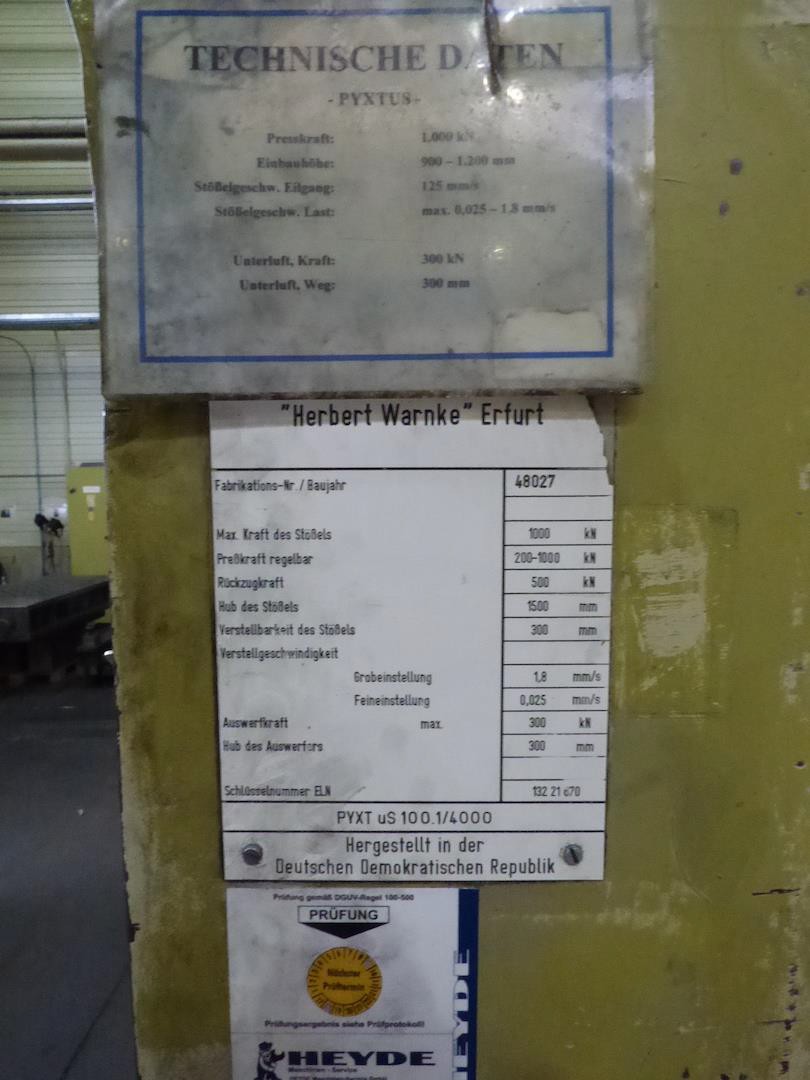 TECHNISCHE DATEN
- PYXTUS -
Presskraft: 1.000 kN
Einbauhöhe: 900 – 1.200 mm
Stößelgeschw. Eilgang: 125 mm/s
Stößelgeschw. Last: max. 0,025 – 1,8 mm/s
Unterluft, Kraft: 300 kN
Unterluft, Weg: 300 mm
"Herbert Warnke" Erfurt
Fabrikations-Nr. / Baujahr 48027
Max. Kraft des Stößels 1000 kN
Preßkraft regelbar 200-1000 kN
Rückzugkraft 500 kN
Hub des Stößels 1500 mm
Verstellbarkeit des Stößels 300 mm
Verstellgeschwindigkeit
Grobeinstellung 1,8 mm/s
Feineinstellung 0,025 mm/s
Auswerfkraft max. 300 kN
Hub des Auswerfers 300 mm
Schlüsselnummer ELN 132 21 670
PYXT uS 100.1/4000
Hergestellt in der
Deutschen Demokratischen Republik
Prüfung gemäß DGUV-Regel 100-500
PRÜFUNG
Nächster
Prüftermin
Prüfungsergebnis siehe Prüfprotokoll!
HEYDE
Maschinen - Service
HEYDE